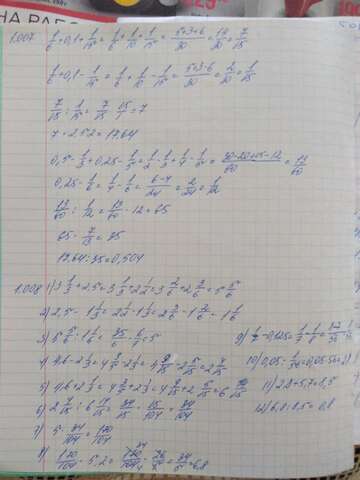 НА РАБО
1.007 1/6+0,1+1/15=1/6+1/10+1/15=(5+3+6)/30=14/30=7/15
1/6+0,1-1/15=1/6+1/10-1/15=(5+3-6)/30=2/30=1/15
7/15:1/15=7/15·15/1=7
7·2,52=17,64
0,5-1/3+0,25-1/5=1/2-1/3+1/4-1/5=(30-20+15-12)/60=13/60
0,25-1/6=1/4-1/6=(6-4)/24=2/24=1/12
13/60:1/12=13/60·12=
17,64:35=0,504
1.008 1) 3 1/3+2,5=3 1/3+2 1/2=3 2/6+2 3/6=5 5/6
2) 2,5-1 1/3=2 1/2-1 1/3=2 3/6-1 2/6=1 1/6
3) 5 5/6:1 1/6=35/6·6/7=5
4) 4,6-2 1/3=4 3/5-2 1/3=4 9/15-2 5/15=2 4/15
5) 4,6+2 1/3=4 3/5+2 1/3=4 9/15+2 5/15=6 14/15
6) 2 4/15:6 14/15=34/15·15/104=34/104
7) 5·34/104=170/104
8) 170/104·5,2=170/104·26/5=34/5=6,8
10) 0,05
11) 2,8+5,7=8,5
12) 6,8:8,5=0,8